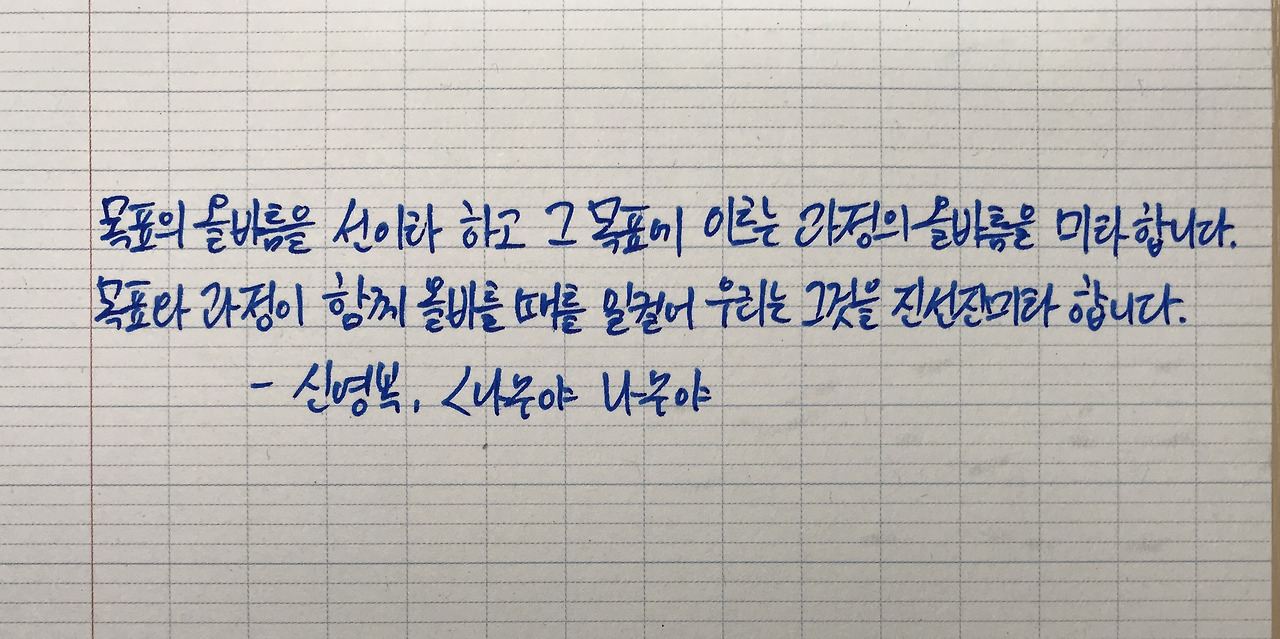 목표의 올바름을 선이라 하고 그 목표에 이르는 과정의 올바름을 미라 합니다.
목표와 과정이 함께 올바를 때를 일컬어 우리는 그것을 진선진미라 합니다.
- 신영복, <나무야 나무야